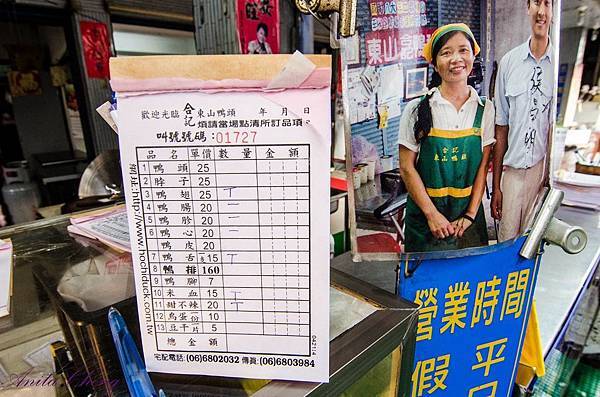 歡迎光臨 合記 東山鴨頭 年 月 日
煩請當場點清所訂品項。
叫號號碼：01727
品名 單價 數量 金額
1 鴨頭 25
2 脖子 25
3 鴨翅 25
4 鴨腸 20
5 鴨胗 20
6 鴨心 20
鴨皮 20
7 鴨舌 15
8 鴨排 160
9 鴨腳 7
10 米血 15
11 甜不辣 20
12 鳥蛋 10
13 豆干 5
總金額
網址:http://www.hochiduck.com.tw
042114
宅配電話:(06)6802032 傳真:(06)6803984
東山鴨頭
合記
東山鴨頭
營業時間
假 平
日
Anita